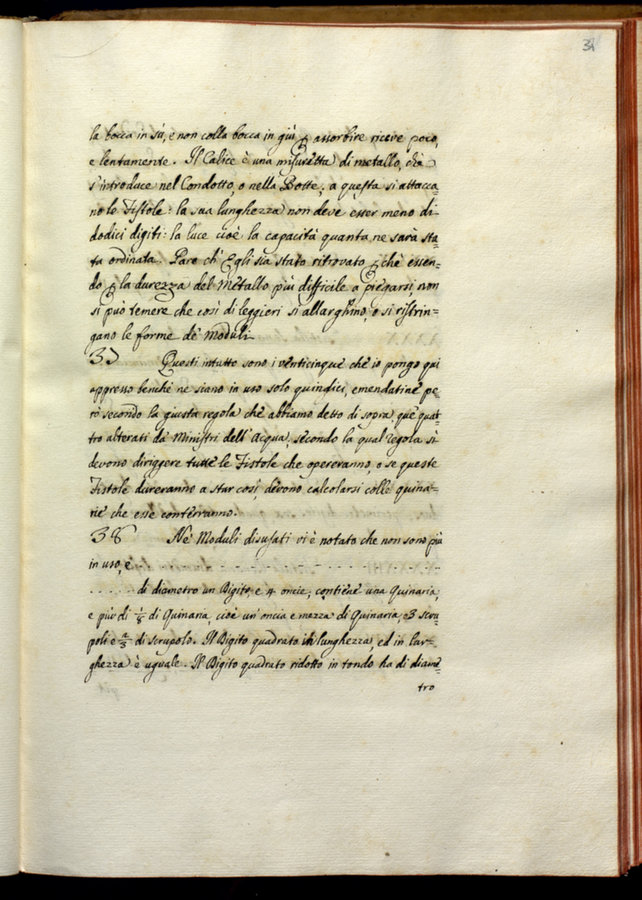 31
la bocca in sù, e non colla bocca in giù p assorbire riceve poco,
e lentamente. Il Calice è una misuretta di metallo, che
s'introduce nel Condotto, o nella Botte, a questa si attacca
no le Fistole: la sua lunghezza non deve esser meno di
dodici digiti: la luce cioè la capacità quanta ne sarà sta=
ta ordinata. Pare ch' Egli sia stato ritrovato pchè essen=
do p la durezza del Metallo più difficile a piegarsi, non
si può temere che così di leggieri si allarghino, o si ristrin=
gano le forme de' Moduli.
37 Questi intutto sono i venticinque che io pongo qui
appresso benche ne siano in uso solo quindici, emendatine pe
rò secondo la giusta regola che abbiamo detto di sopra, que' quat=
tro alterati da' Ministri dell' Acqua, secondo la qual regola si
devono diriggere tutte le Fistole che opereranno, o se queste
Fistole dureranno a star così, devono calcolarsi colle quina=
rie che esse conterranno.
38 Ne' Moduli disusati vi è notato che non sono più
in uso, e . . . . . . . . . .
. . . . . . di diametro un Digito, e 4. oncie, contiene una Quinaria,
e più di 1/8 di Quinaria, cioè un' oncia e mezza di Quinaria, e 3 scru=
poli e di scrupolo. Il Digito quadrato in lunghezza, ed in lar=
ghezza è uguale. Il Digito quadrato ridotto in tondo ha di diame=
tro